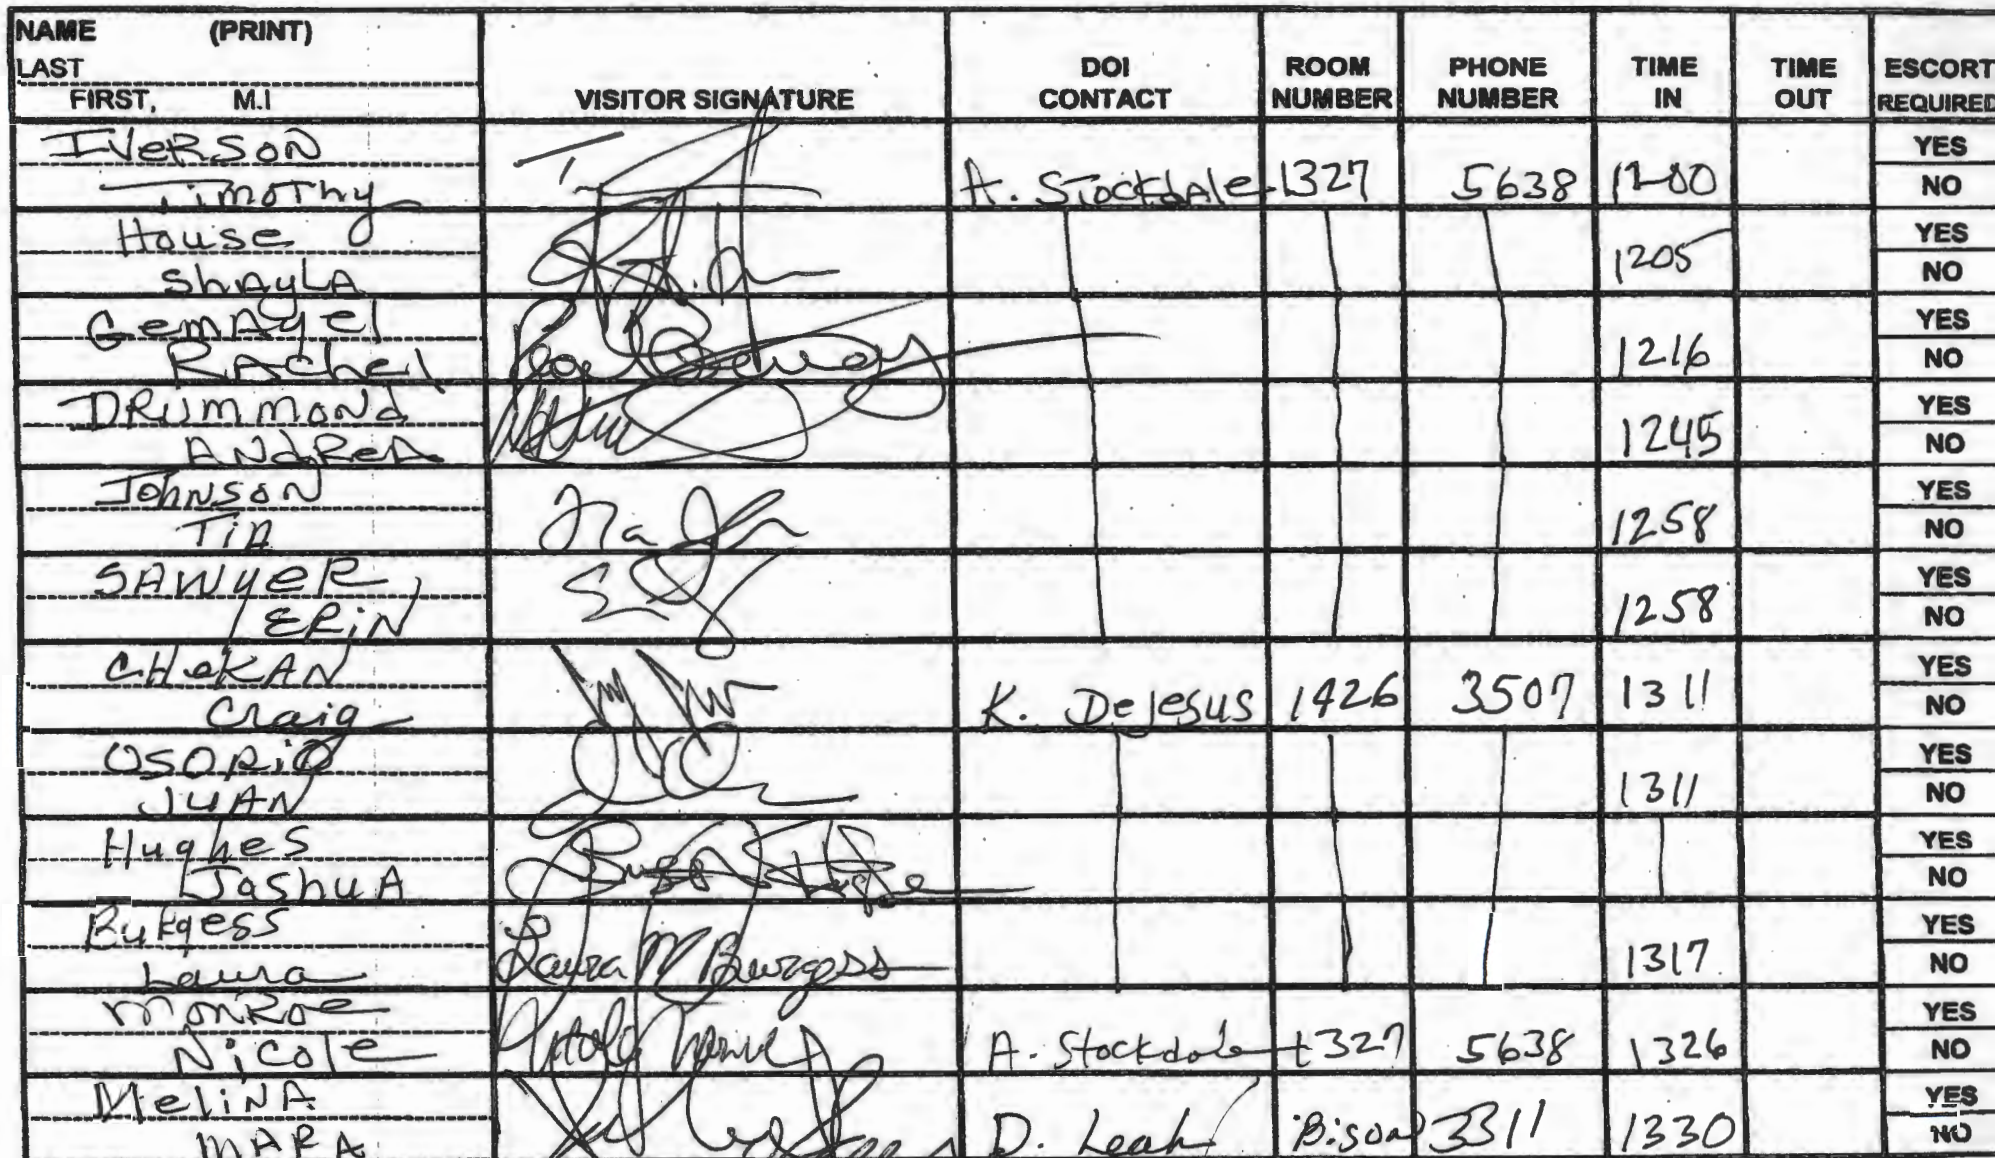 NAME (PRINT)
LAST
FIRST, M.I
VISITOR SIGNATURE
DOI CONTACT
ROOM NUMBER
PHONE NUMBER
TIME IN
TIME OUT
ESCORT REQUIRED
IVERSON
Timothy
A. Stockdale 1327 5638 1200
YES
NO
House
ShAyLA
1205
YES
NO
GemAyel
RAchel
1216
YES
NO
DRUmmONd
ANdReA
1245
YES
NO
JohNSoN
TiA
1258
YES
NO
SAWyeR,
ERiN
1258
YES
NO
CHeKAN
Craig
K. DeJesus 1426 3507 1311
YES
NO
OSORiO
JUAN
1311
YES
NO
Hughes
JoshuA
YES
NO
Burgess
Laura
Laura M Burgess
1317
YES
NO
monRoe
Nicole
A. Stockdale 1327 5638 1326
YES
NO
MeliNA
mARA
D. Leah Bison 3311 1330
YES
NO